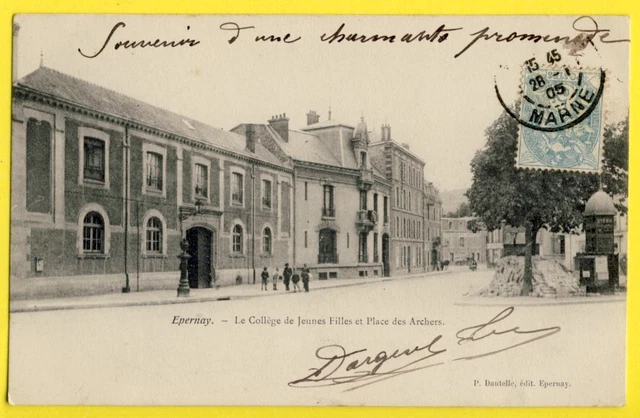 Souvenir d'une charmante promenade
15 45
28 - 1
05
MARNE
Epernay. – Le Collège de Jeunes Filles et Place des Archers.
P. Dautelle, édit. Epernay.